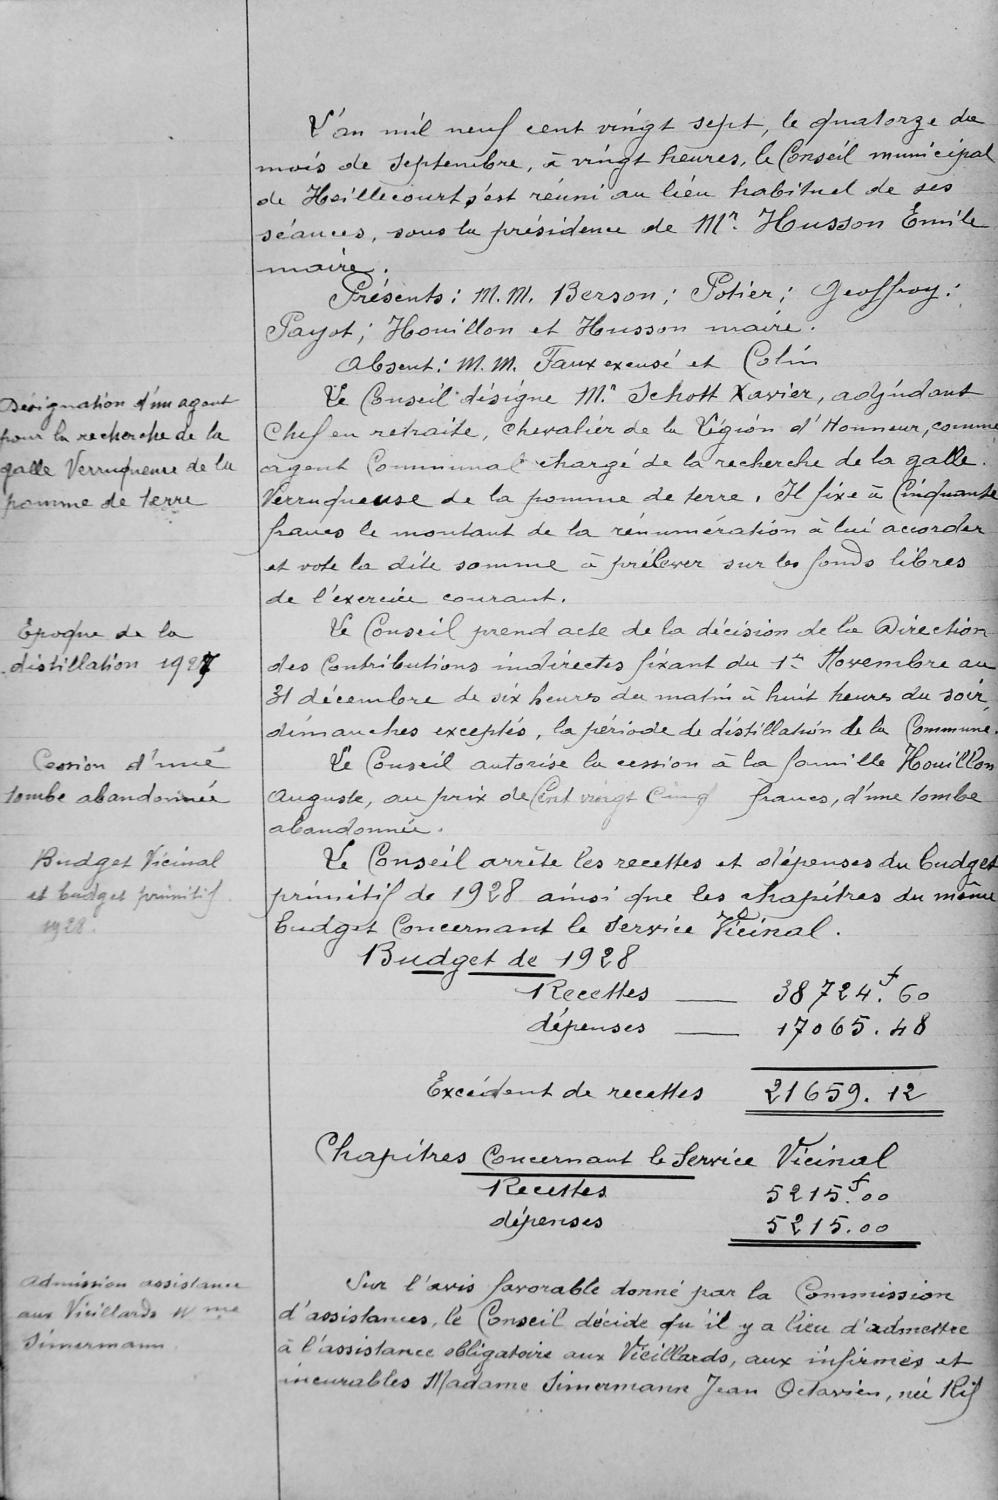 L'an mil neuf cent vingt sept, le quatorze du
mois de septembre, à vingt heures, le Conseil municipal
de Heillecourt s'est réuni au lieu habituel de ses
séances, sous la présidence de Mr. Husson Émile
maire.
Présents: M.M. Berson; Potier; Geoffroy;
Payot; Houillon et Husson maire.
Absent: M.M. Faux excusé et Colin
Désignation d'un agent
pour la recherche de la
galle Verruqueuse de la
pomme de terre
Le Conseil désigne Mr. Schott Xavier, adjudant
Chef en retraite, Chevalier de la Légion d'Honneur, comme
agent Communal chargé de la recherche de la galle
Verruqueuse de la pomme de terre. Il fixe à Cinquante
francs le montant de la rénumération à lui accorder
et vote la dite somme à prélever sur les fonds libres
de l'exercice courant.
Époque de la
distillation 1927
Le Conseil prend acte de la décision de la Direction
des Contributions indirectes fixant du 1er Novembre au
31 décembre de six heures du matin à huit heures du soir,
dimanches exceptés, la période de distillation de la Commune.
Cession d'une
tombe abandonnée
Le Conseil autorise la cession à la famille Houillon
Auguste, au prix de Cent vingt Cinq francs, d'une tombe
abandonnée.
Budget Vicinal
et budget primitif
1928.
Le Conseil arrête les recettes et dépenses du budget
primitif de 1928 ainsi que les chapitres du même
budget Concernant le Service Vicinal.
Budget de 1928
Recettes — 38724f.60
dépenses — 17065.48
Excédent de recettes 21659.12
Chapitres Concernant le Service Vicinal
Recettes 5215f.00
dépenses 5215.00
Admission assistance
aux Vieillards Mme
Simermann
Sur l'avis favorable donné par la Commission
d'assistances, le Conseil décide qu'il y a lieu d'admettre
à l'assistance obligatoire aux Vieillards, aux infirmes et
incurables Madame Simermann Jean Octavien, née Rif